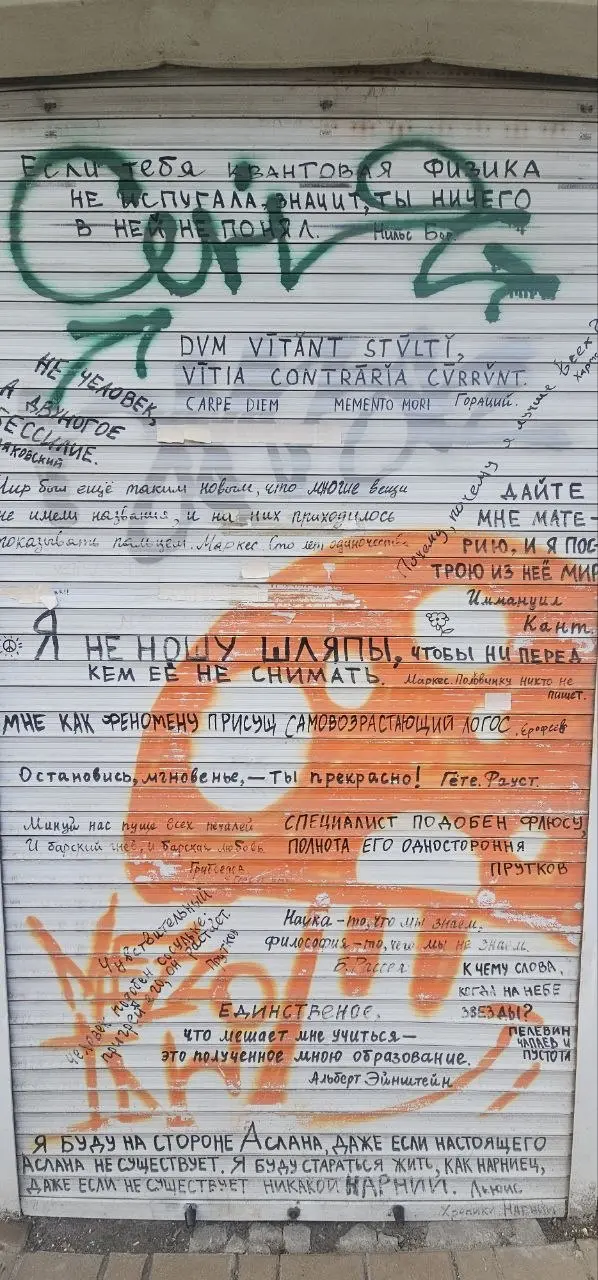 Если тебя квантовая физика
не испугала, значит, ты ничего
в ней не понял. Нильс Бор.
DVM VĪTĂNT STVLTĬ,
VĬTIA CONTRĀRĬA CVRRVNT.
CARPE DIEM MEMENTO MORI Гораций.
НЕ ЧЕЛОВЕК,
А ДВУНОГОЕ
БЕССИЛИЕ.
Маяковский
Почему, почему я лучше всех?
Мир был ещё таким новым, что многие вещи
не имели названия, и на них приходилось
показывать пальцем. Маркес. Сто лет одиночества
ДАЙТЕ
МНЕ МАТЕ-
РИЮ, И Я ПОС-
ТРОЮ ИЗ НЕЁ МИР
Иммануил
Кант.
Я НЕ НОШУ ШЛЯПЫ, ЧТОБЫ НИ ПЕРЕД
КЕМ ЕЁ НЕ СНИМАТЬ. Маркес. Полковнику никто не
пишет.
МНЕ КАК ФЕНОМЕНУ ПРИСУЩ САМОВОЗРАСТАЮЩИЙ ЛОГОС. Ерофеев
Остановись, мгновенье, — ты прекрасно! Гёте. Фауст.
Минуй нас пуще всех печалей
И барский гнев, и барская любовь
Грибоедов
СПЕЦИАЛИСТ ПОДОБЕН ФЛЮСУ,
ПОЛНОТА ЕГО ОДНОСТОРОННЯ
ПРУТКОВ
Чувствительный
человек подобен сосульке:
пригрей его, он растает.
Прутков
Наука — то, что мы знаем,
философия — то, чего мы не знаем.
Б. Рассел
К ЧЕМУ СЛОВА,
КОГДА НА НЕБЕ
ЗВЕЗДЫ?
ПЕЛЕВИН
ЧАПАЕВ И
ПУСТОТА
Единственое,
что мешает мне учиться —
это полученное мною образование.
Альберт Эйнштейн
Я БУДУ НА СТОРОНЕ АСЛАНА, ДАЖЕ ЕСЛИ НАСТОЯЩЕГО
АСЛАНА НЕ СУЩЕСТВУЕТ. Я БУДУ СТАРАТЬСЯ ЖИТЬ, КАК НАРНИЕЦ,
ДАЖЕ ЕСЛИ НЕ СУЩЕСТВУЕТ НИКАКОЙ НАРНИИ. Льюис
Хроники НАРНИИ